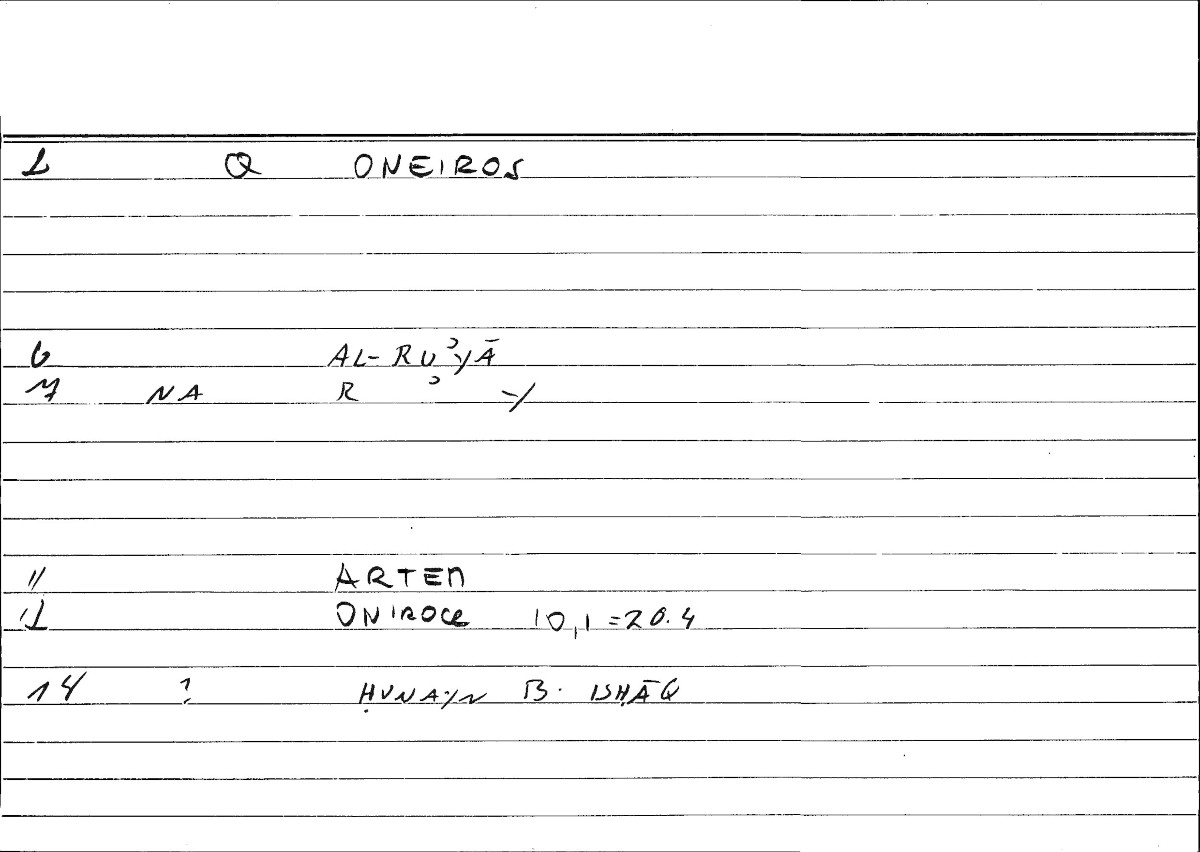 1 Q ONEIROS
6 AL-RUʾYĀ
7 NA R ʾ -y
11 ARTEM
12 ONIROCR 10,1=20.4
14 ? ḤUNAYN B. ISḤĀQ